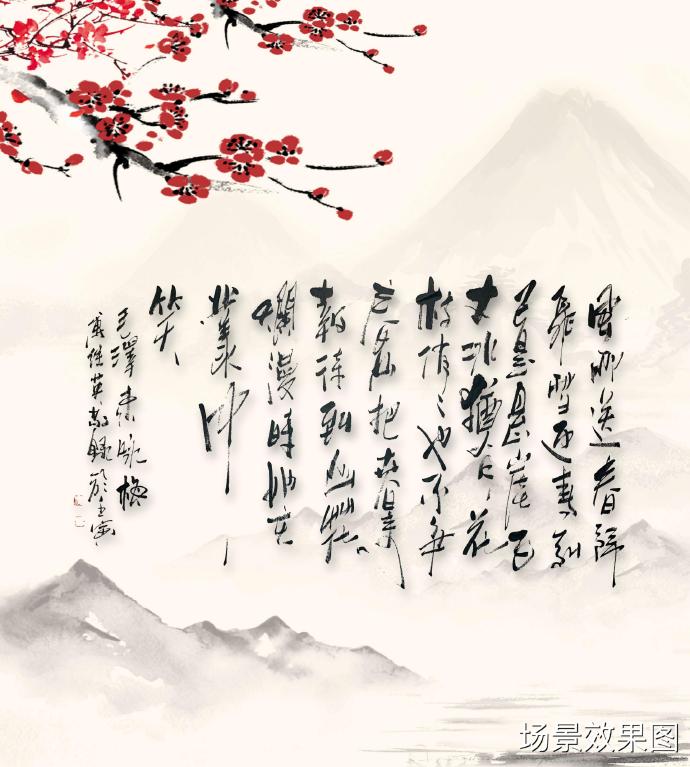 風雨送春歸
飛雪迎春到
已是悬崖百
丈冰猶有花
枝俏〻也不争
春只把春來
報待到山花
爛漫時她在
叢中
笑
毛澤東詠梅
英敬録於壬寅
场景效果图